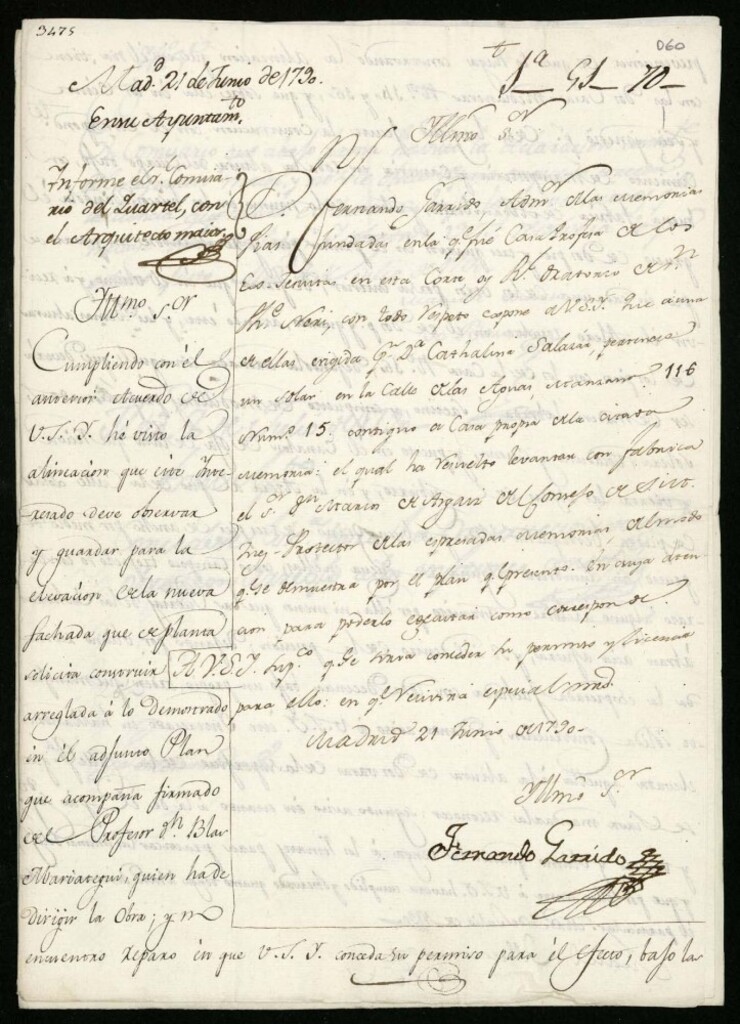 3475
D60
1ª 51 70
Mad.d 21 de Junio de 1790.
En su Ayuntam.to
Informe el s.r Comisa-
rio del Quartel, con
el Arquitecto maior
Yllmo. s.or
Cumpliendo con el
anterior Acuerdo de
V.S.Y. hé visto la
alineacion que este Ynte-
resado deve observar
y guardar para la
elevacion de la nueva
fachada que de planta
solicita construir
arreglada à lo demostrado
en el adjunto Plan
que acompaña firmado
del Profesor d.n Blas
Mariategui, quien ha de
dirigir la Obra; y no
encuentro reparo en que V.S.Y. conceda su permiso para el efecto, bajo la
Yllmo. S.or
D. Fernando Garrido, Adm.or de las Memorias
pias fundadas en la q.e fué Casa Profesa de los
Ex-Jesuitas en esta Corte oy R.l Oratorio de S.n
Ph.e Neri, con todo respeto expone a V.S.Y. que a una
de ellas erigida p.r D.a Cathalina Salazar, pertenece
un solar en la Calle de las Aguas, Manzana 116
Num.o 15. contiguo a Casa propia de la citada
Memoria: el qual ha resuelto levantar con fabrica
el S.or D.n Marcos de Argaiz del Consejo de S.M.
Juez-Protector de las expresadas Memorias, del modo
q.e se demuestra por el plan q.e presento. En cuya aten-
cion para poderlo executar como corresponde.
A V.S.Y. sup.co q.e se sirva conceder su permiso y licencia
para ello: en q.e recivirá especial mrd.
Madrid 21 Junio de 1790.
Yllmo. S.or
Fernando Garrido